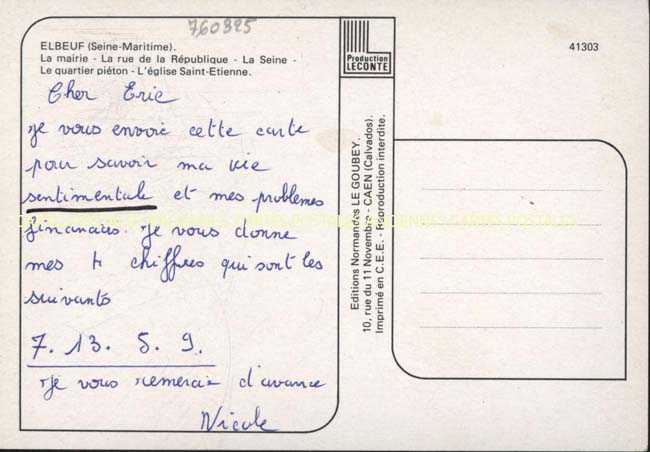 760325
ELBEUF (Seine-Maritime).
La mairie - La rue de la République - La Seine -
Le quartier piéton - L'église Saint-Etienne.
Cher Eric
Je vous envoie cette carte
pour savoir ma vie
sentimentale et mes problèmes
financiers. Je vous donne
mes 4 chiffres qui sont les
suivants
7. 13. 5. 9.
Je vous remercie d'avance
Nicole
Production
LECONTE
Editions Normandes LE GOUBEY.
10, rue du 11 Novembre - CAEN (Calvados).
Imprimé en C.E.E. - Reproduction interdite.
41303